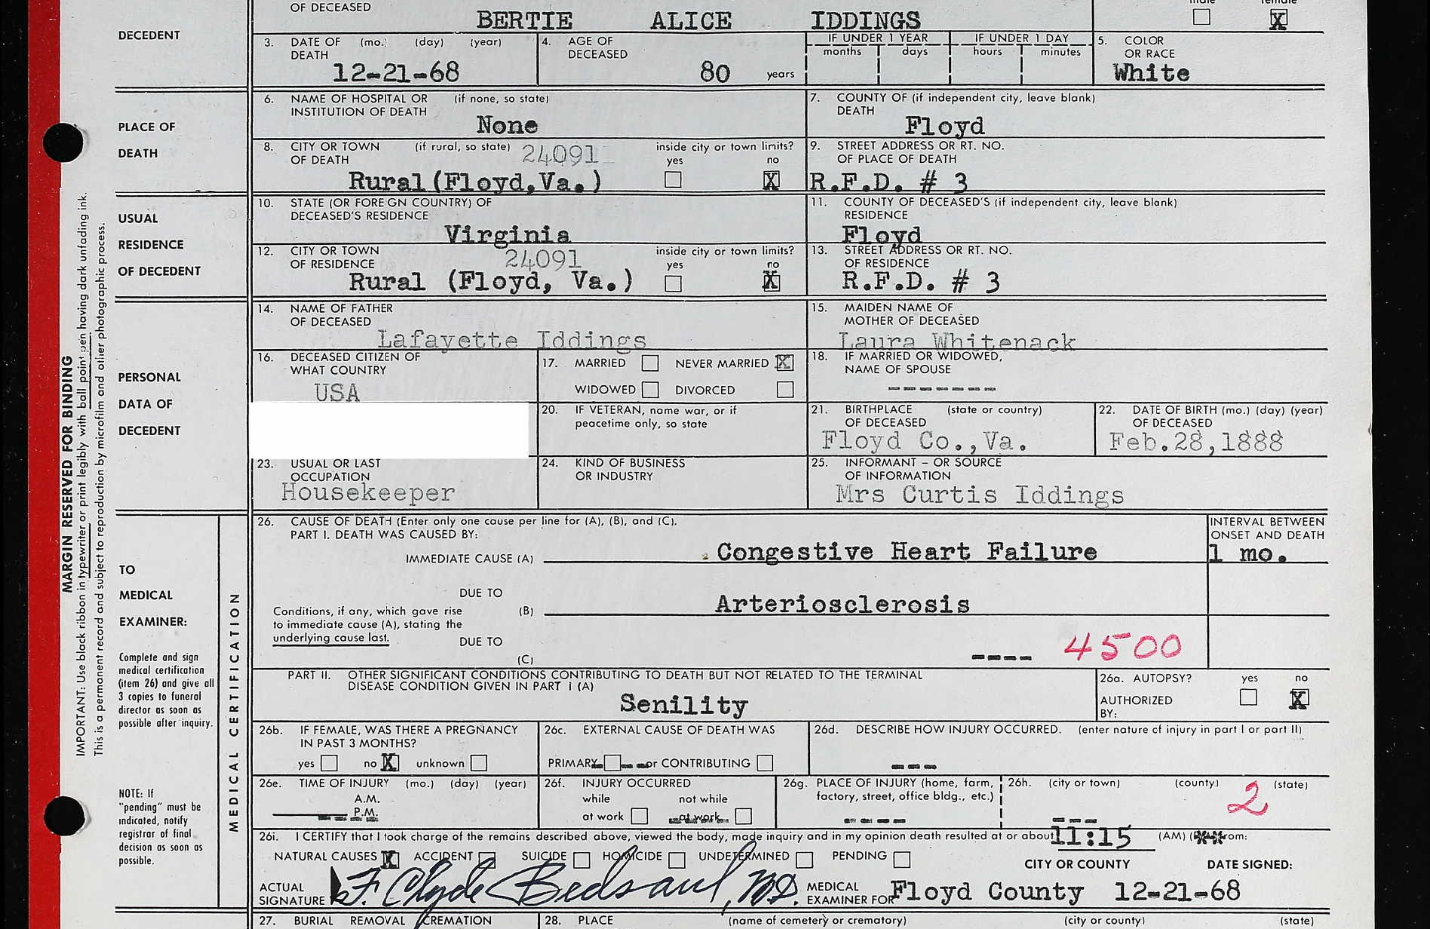 OF DECEASED BERTIE ALICE IDDINGS male female X
DECEDENT
3. DATE OF (mo.) (day) (year) DEATH 12-21-68
4. AGE OF DECEASED 80 years
IF UNDER 1 YEAR months days
IF UNDER 1 DAY hours minutes
5. COLOR OR RACE White
PLACE OF DEATH
6. NAME OF HOSPITAL OR (if none, so state) INSTITUTION OF DEATH None
7. COUNTY OF (if independent city, leave blank) DEATH Floyd
8. CITY OR TOWN (if rural, so state) OF DEATH 24091 Rural (Floyd, Va.)
inside city or town limits? yes no X
9. STREET ADDRESS OR RT. NO. OF PLACE OF DEATH R.F.D. # 3
USUAL RESIDENCE OF DECEDENT
10. STATE (OR FOREIGN COUNTRY) OF DECEASED'S RESIDENCE Virginia
11. COUNTY OF DECEASED'S (if independent city, leave blank) RESIDENCE Floyd
12. CITY OR TOWN OF RESIDENCE 24091 Rural (Floyd, Va.)
inside city or town limits? yes no X
13. STREET ADDRESS OR RT. NO. OF RESIDENCE R.F.D. # 3
PERSONAL DATA OF DECEDENT
14. NAME OF FATHER OF DECEASED Lafayette Iddings
15. MAIDEN NAME OF MOTHER OF DECEASED Laura Whitenack
16. DECEASED CITIZEN OF WHAT COUNTRY USA
17. MARRIED NEVER MARRIED X
WIDOWED DIVORCED
18. IF MARRIED OR WIDOWED, NAME OF SPOUSE -------
20. IF VETERAN, name war, or if peacetime only, so state
21. BIRTHPLACE (state or country) OF DECEASED Floyd Co.,Va.
22. DATE OF BIRTH (mo.) (day) (year) OF DECEASED Feb.28,1888
23. USUAL OR LAST OCCUPATION Housekeeper
24. KIND OF BUSINESS OR INDUSTRY
25. INFORMANT - OR SOURCE OF INFORMATION Mrs Curtis Iddings
MARGIN RESERVED FOR BINDING
IMPORTANT: Use black ribbon in typewriter or print legibly with ball point pen having dark unfading ink.
This is a permanent record and subject to reproduction by microfilm and other photographic process.
TO MEDICAL EXAMINER:
Complete and sign medical certification (item 26) and give all 3 copies to funeral director as soon as possible after inquiry.
NOTE: If "pending" must be indicated, notify registrar of final decision as soon as possible.
MEDICAL CERTIFICATION
26. CAUSE OF DEATH (Enter only one cause per line for (A), (B), and (C).
PART I. DEATH WAS CAUSED BY:
INTERVAL BETWEEN ONSET AND DEATH
IMMEDIATE CAUSE (A) Congestive Heart Failure 1 mo.
DUE TO
Conditions, if any, which gave rise to immediate cause (A), stating the underlying cause last.
(B) Arteriosclerosis
DUE TO
(C) ---- 4500
PART II. OTHER SIGNIFICANT CONDITIONS CONTRIBUTING TO DEATH BUT NOT RELATED TO THE TERMINAL
DISEASE CONDITION GIVEN IN PART I (A)
Senility
26a. AUTOPSY? yes no X
AUTHORIZED BY:
26b. IF FEMALE, WAS THERE A PREGNANCY IN PAST 3 MONTHS?
yes no X unknown
26c. EXTERNAL CAUSE OF DEATH WAS
PRIMARY or CONTRIBUTING
26d. DESCRIBE HOW INJURY OCCURRED. (enter nature of injury in part I or part II) ---
26e. TIME OF INJURY (mo.) (day) (year) A.M. P.M.
26f. INJURY OCCURRED while at work not while at work
26g. PLACE OF INJURY (home, farm, factory, street, office bldg., etc.) ----
26h. (city or town) (county) (state) --- 2
26i. I CERTIFY that I took charge of the remains described above, viewed the body, made inquiry and in my opinion death resulted at or about 11:15 (AM) from:
NATURAL CAUSES X ACCIDENT SUICIDE HOMICIDE UNDETERMINED PENDING
CITY OR COUNTY DATE SIGNED:
ACTUAL SIGNATURE F. Clyde Bedsaul, M.D. MEDICAL EXAMINER FOR Floyd County 12-21-68
27. BURIAL REMOVAL CREMATION
28. PLACE (name of cemetery or crematory) (city or county) (state)